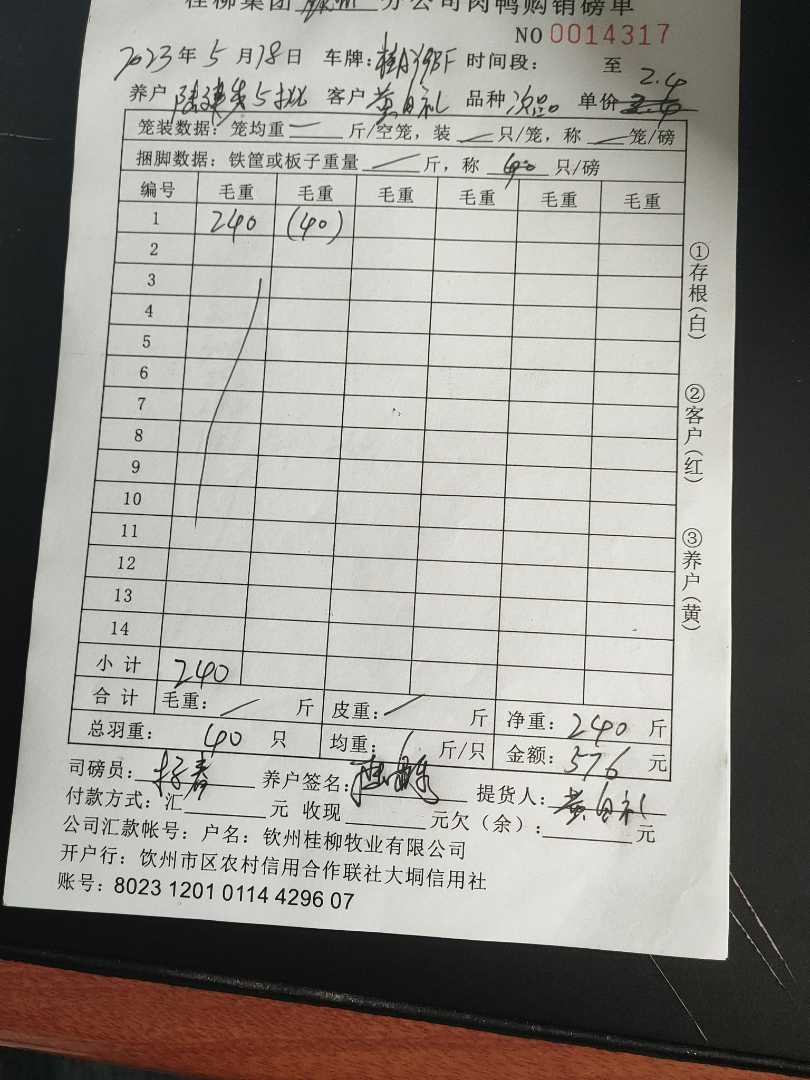 桂柳集团 钦州 分公司肉鸭购销磅单
NO 0014317
2023年5月18日 车牌: 时间段: 至
养户 5批 客户 黄自礼 品种 次品 单价 2.4
笼装数据: 笼均重 — 斤/空笼, 装 — 只/笼, 称 — 笼/磅
捆脚数据: 铁筐或板子重量 — 斤, 称 40 只/磅
编号 毛重 毛重 毛重 毛重 毛重 毛重
1 240 (40)
2
3
4
5
6
7
8
9
10
11
12
13
14
小计 240
合计 毛重: / 斤 皮重: / 斤 净重: 240 斤
总羽重: 40 只 均重: 6 斤/只 金额: 576 元
司磅员: 养户签名: 提货人: 黄自礼
付款方式: 汇 元 收现 元欠(余): 元
公司汇款帐号: 户名: 钦州桂柳牧业有限公司
开户行: 饮州市区农村信用合作联社大垌信用社
账号: 8023 1201 0114 4296 07
①存根(白)
②客户(红)
③养户(黄)